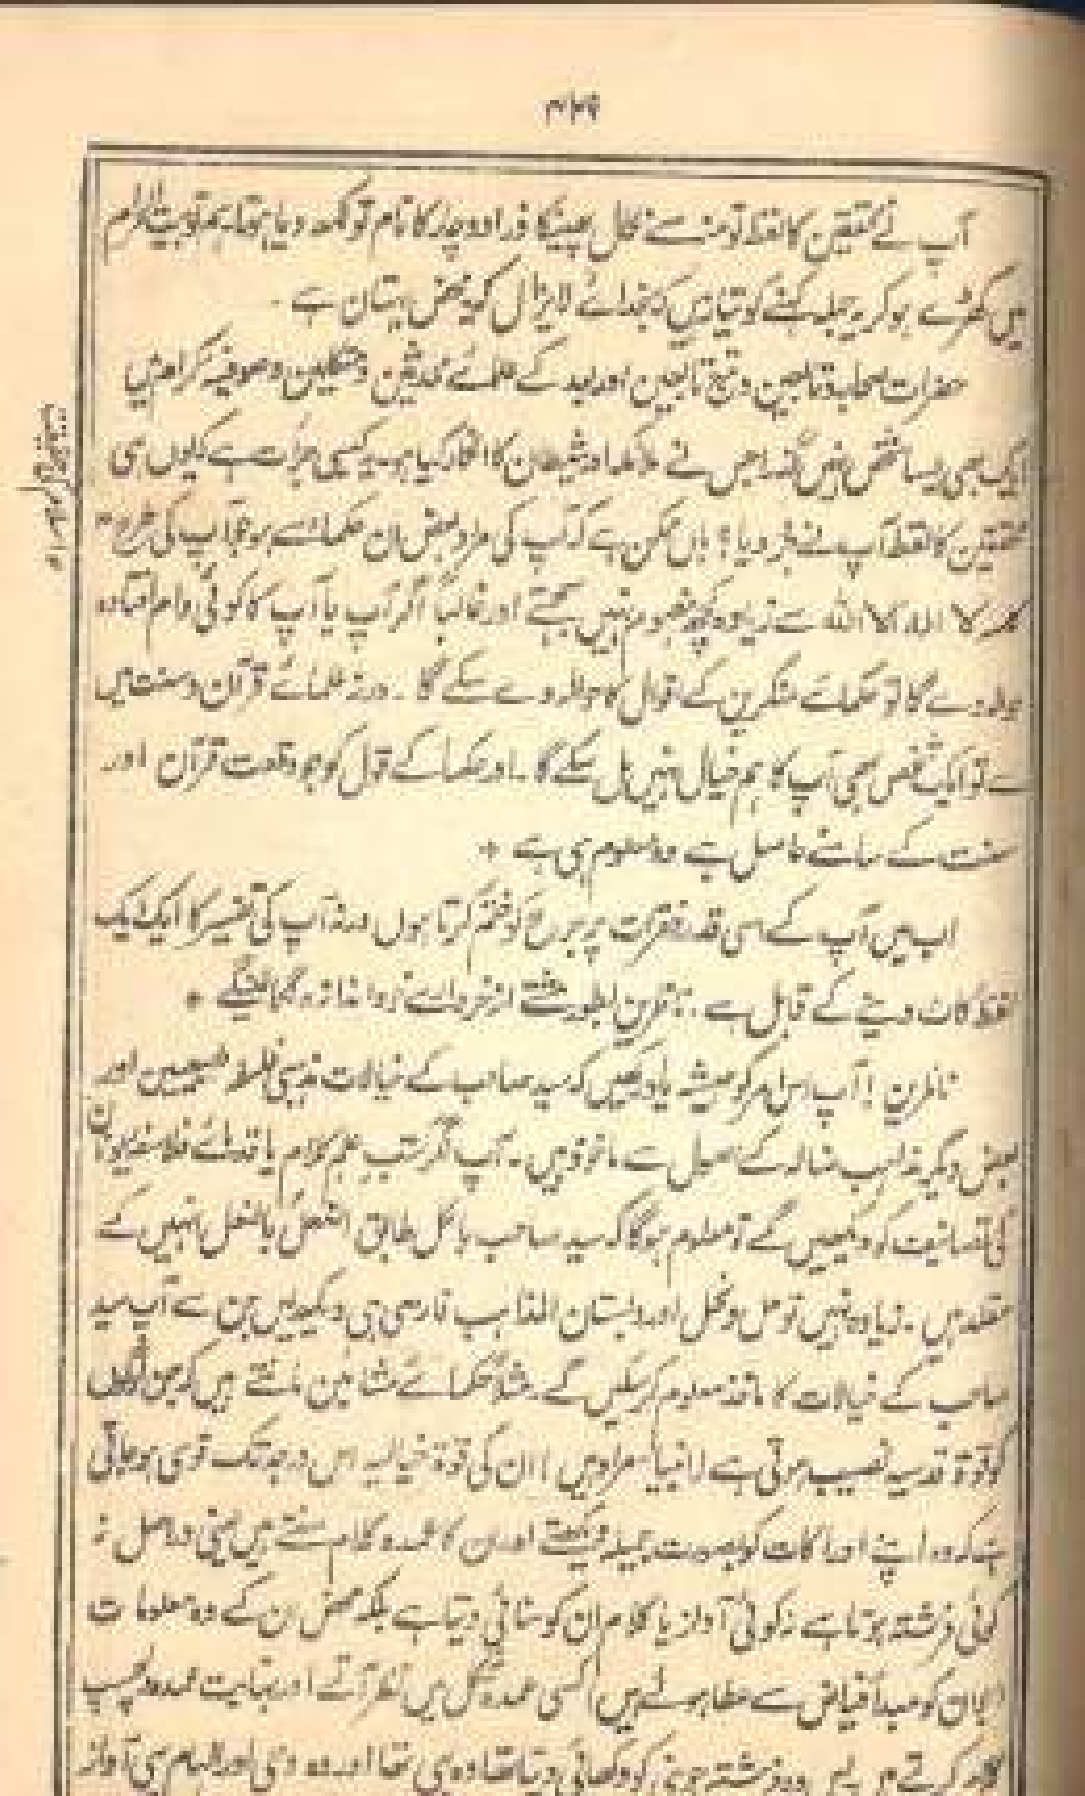 ۴۲۶
آپ نے محققین کا لفظ تو منہ سے نکال پھینکا ذرا دو چار کا نام تو لکھ دیا ہوتا۔ ہم تو بیت الحرام
میں کھڑے ہو کر یہ جملہ کہنے کو تیار ہیں کہ بخدائے لایزال کہ یہ محض بہتان ہے ۔
حضرات صحابہ و تابعین و تبع تابعین اور بعد کے علمائے محدثین و متکلمین و صوفیہ کرام میں
ایک بھی ایسا شخص نہیں گذرا جس نے ملائکہ اور شیطان کا انکار کیا ہو۔ یہ کیسی جرأت ہے کہ یوں ہی
محققین کا لفظ آپ نے جڑ دیا؟ ہاں ممکن ہے کہ آپ کی مراد بعض ان حکماء سے ہو جو آپ کی طرح
کلمہ لا الہ الا اللہ سے زیادہ کچھ نہیں سمجھتے اور غالباً اگر آپ یا آپ کا کوئی دام افتادہ
حوالہ دے گا تو حکمائے منکرین کے اقوال کا حوالہ دے سکے گا ۔ ورنہ علمائے قرآن و سنت میں
سے تو ایک شخص بھی آپ کا ہم خیال نہیں مل سکے گا ۔ اور حکما کے قول کو جو وقعت قرآن اور
سنت کے سامنے حاصل ہے وہ معلوم ہی ہے +
اب میں آپ کے اسی قدر فقرات پر جرح کو ختم کرتا ہوں ورنہ آپ کی تفسیر کا ایک ایک
لفظ کاٹ دینے کے قابل ہے ۔ ناظرین بطور مشتے از خروارے اندازہ +
ناظرین ! آپ اس امر کو ہمیشہ یاد رکھیں کہ سید صاحب کے خیالات مذہبی فلسفہ طبیعین اور
بعض دیگر مذاہب ضالہ کے اصول سے ماخوذ ہیں ۔ آپ اگر کتب علم کلام یا قدمائے فلاسفہ یونان
کی تصانیف کو دیکھیں گے تو معلوم ہوگا کہ سید صاحب بالکل طابق النعل بالنعل انہیں کے
مقلد ہیں ۔ زیادہ نہیں تو ملل و نحل اور دبستان المذاہب فارسی ہی دیکھ لیں جن سے آپ سید
صاحب کے خیالات کا ماخذ معلوم کر سکیں گے ۔ مثلاً حکمائے مشائین مانتے ہیں کہ جن لوگوں
کو قوۃ قدسیہ نصیب ہوتی ہے (انبیاء مراد ہیں) ان کی قوۃ خیالیہ اس درجہ تک قوی ہو جاتی
ہے کہ وہ اپنے ادراکات کو بصورت جمیلہ دیکھتے اور ان کا عمدہ کلام سنتے ہیں یعنی دراصل نہ
کوئی فرشتہ ہوتا ہے نہ کوئی آواز یا کلام ان کو سنائی دیتا ہے بلکہ محض ان کے وہ معلومات
(جو ان کو مبدأ فیاض سے عطا ہوئے ہیں) کسی عمدہ شکل میں نظر آتے اور نہایت عمدہ دلچسپ
کلام کرتے ہیں پس وہ فرشتہ جو نبی کو دکھائی دیتا تھا وہ یہی تھا اور وہ وحی اور الہام کی آواز